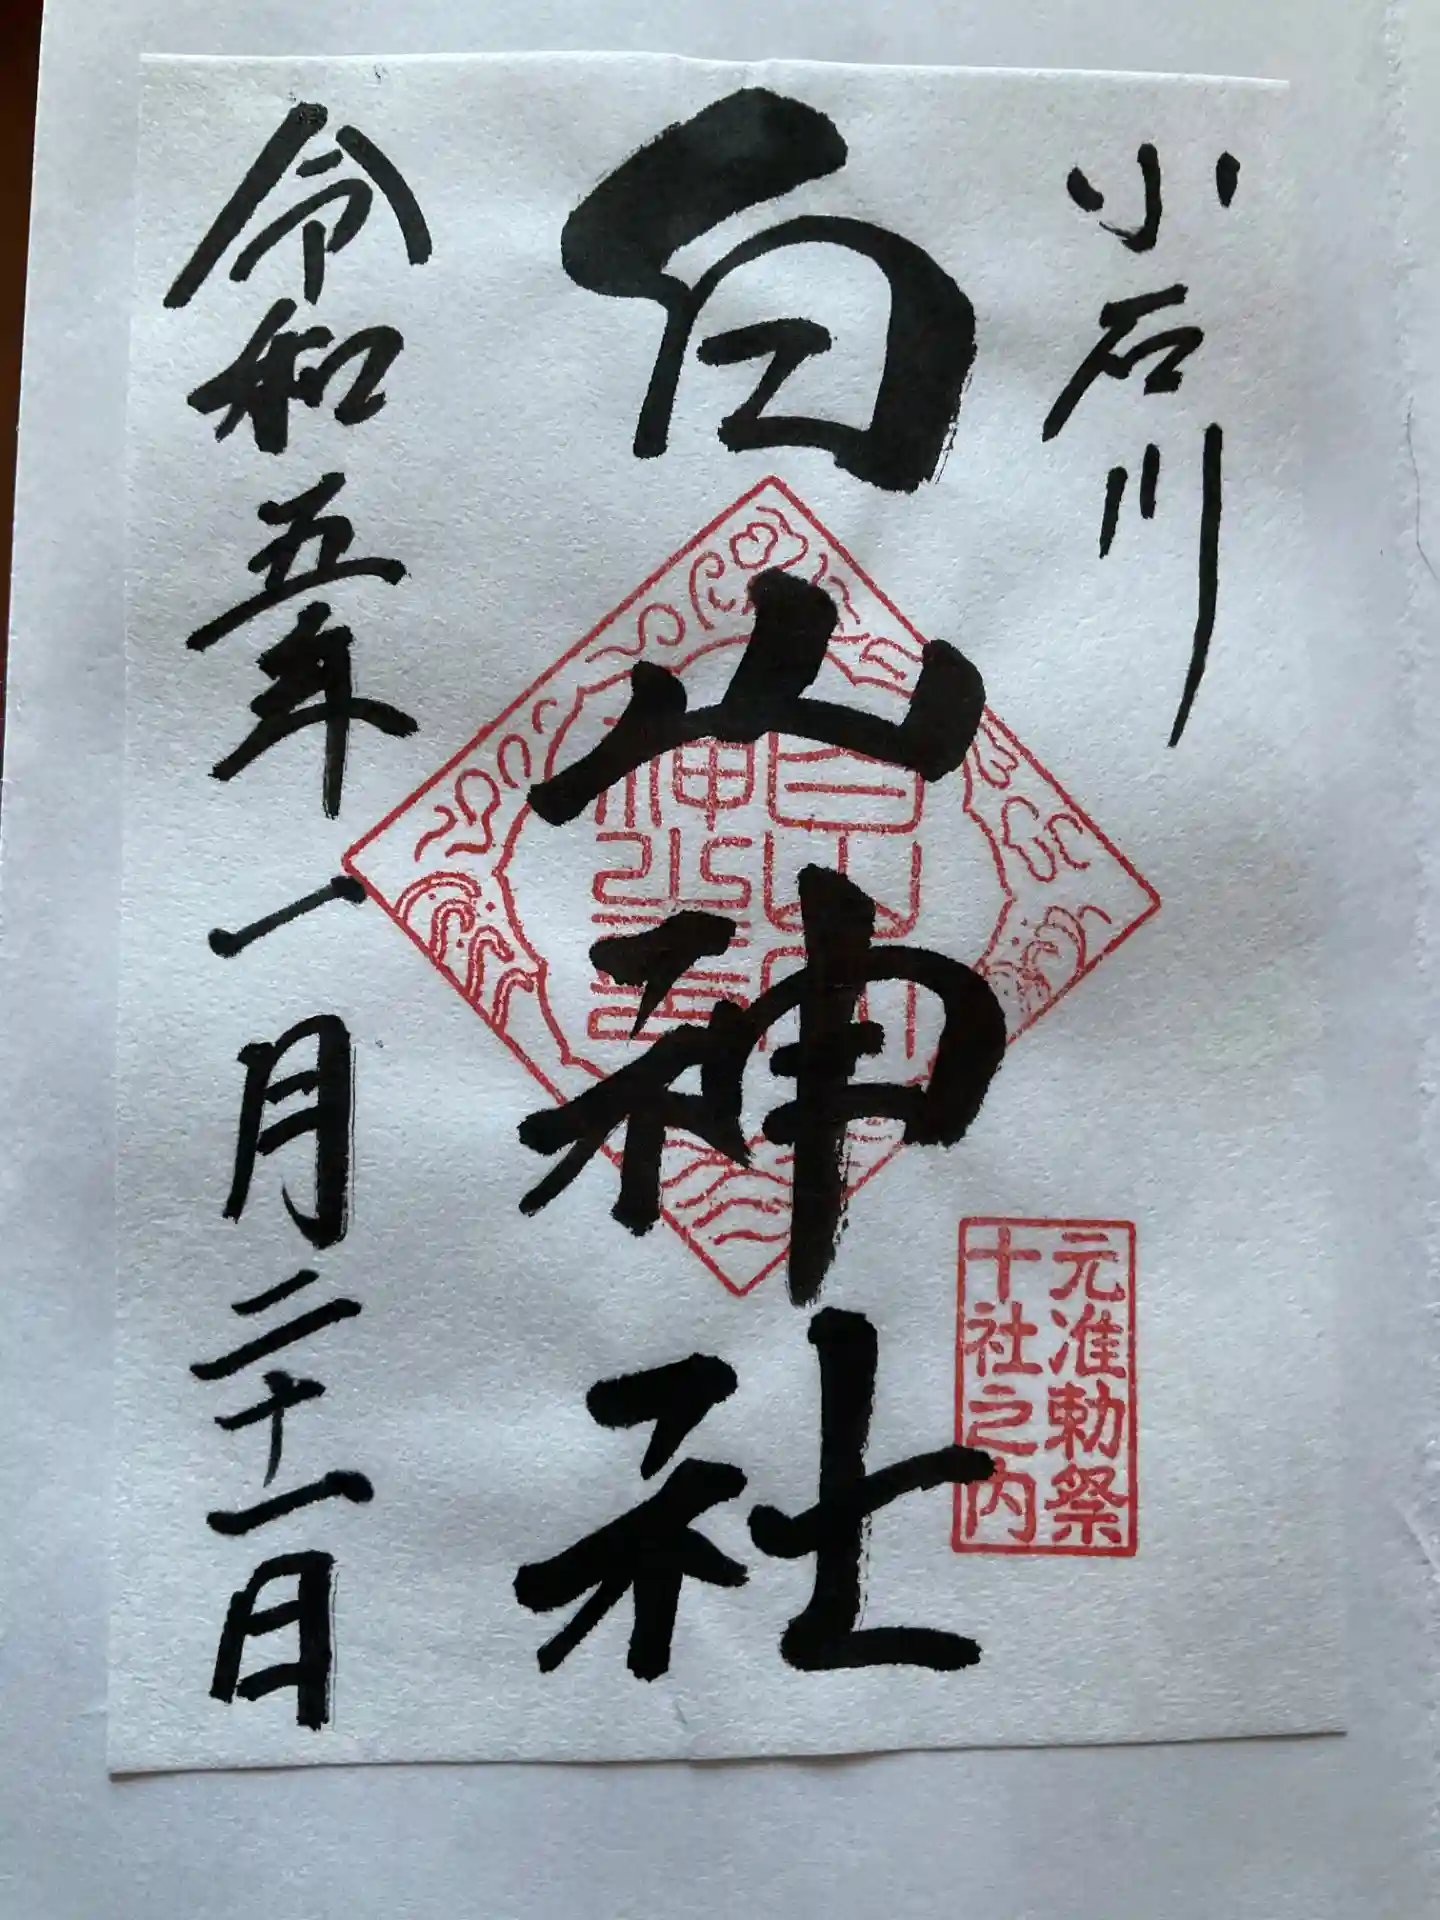 小石川
白山神社
元准勅祭
十社之内
令和五年一月二十一日